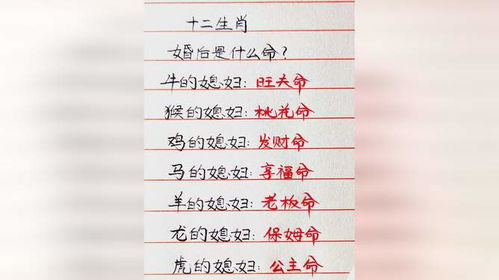 十二生肖
婚后是什么命?
牛的媳妇:旺夫命
猴的媳妇:桃花命
鸡的媳妇:发财命
马的媳妇:享福命
羊的媳妇:老板命
龙的媳妇:保姆命
虎的媳妇:公主命